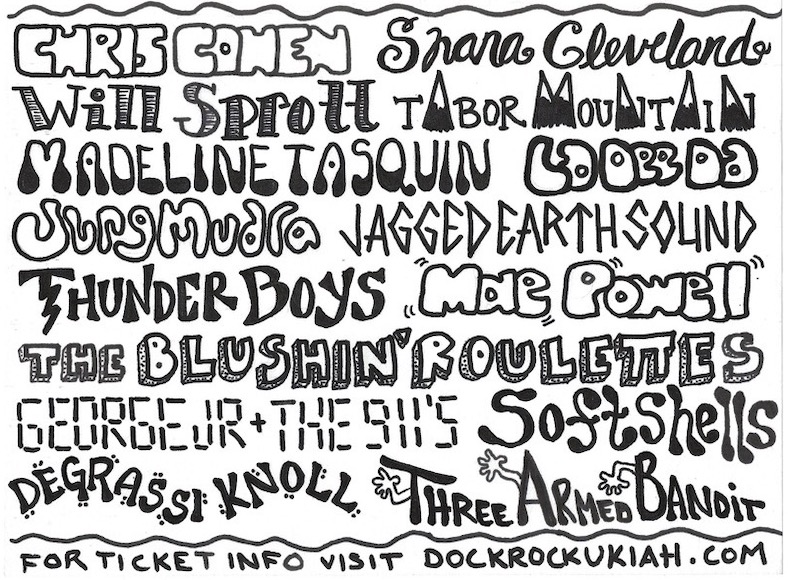 CHRIS COHEN Shana Cleveland
Will Sprott TABOR MOUNTAIN
MADELINE TASQUIN La Dee Da
Jung Mudra JAGGED EARTH SOUND
THUNDER BOYS "Mae Powell"
THE BLUSHIN' ROULETTES
GEORGE JR + THE 911'S Softshells
DEGRASSI KNOLL THREE ARMED BANDIT
FOR TICKET INFO VISIT DOCKROCKUKIAH.COM